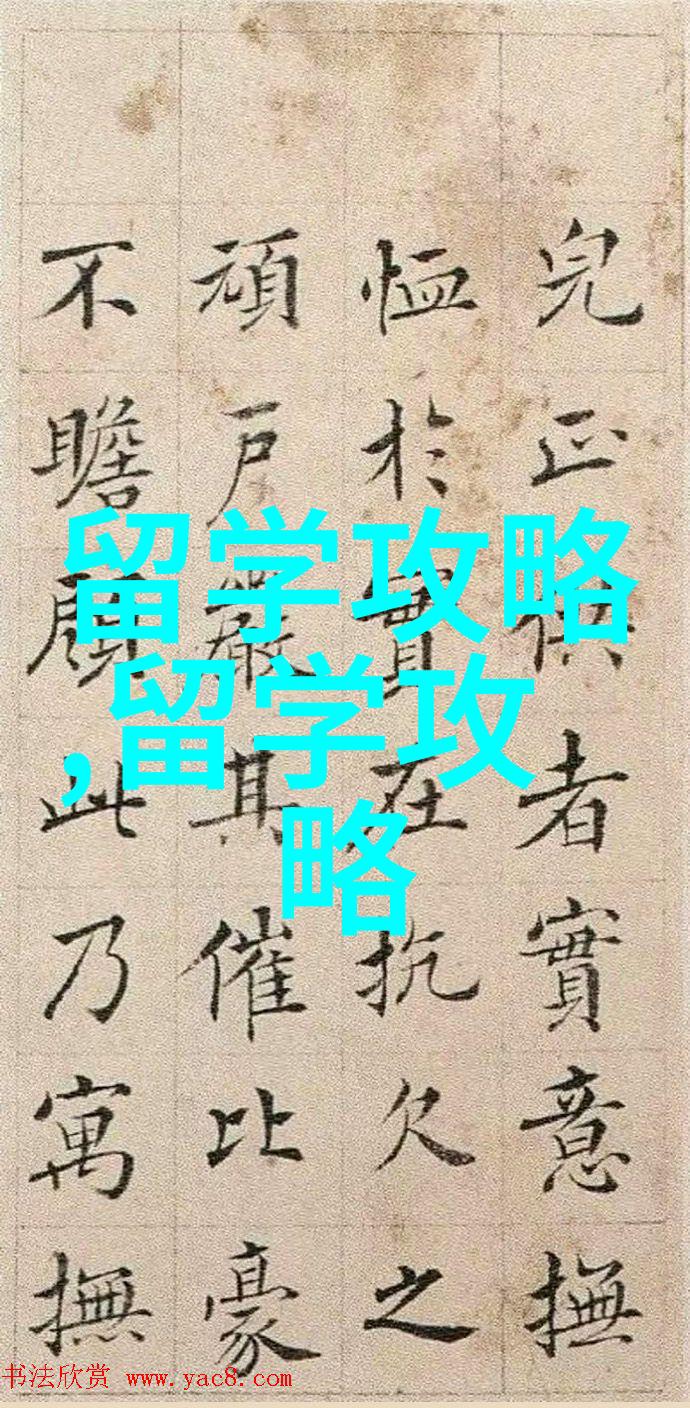 完正供者實意撫
恤於實在抗欠之
頑戶嚴其催比豪
不瞻顧此乃寓撫
留学攻略
,留学攻
略
书法欣赏 www.yac8.com